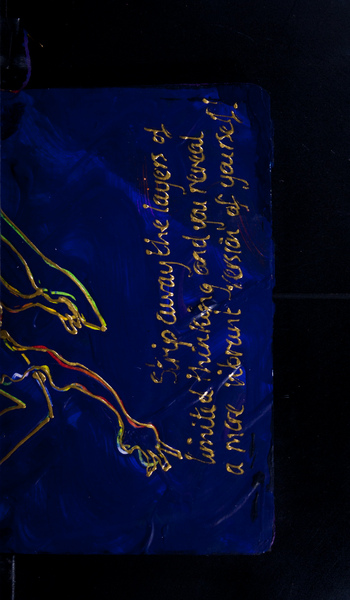 Strip away the layers of
limited thinking and you reveal
a more vibrant version of yourself!